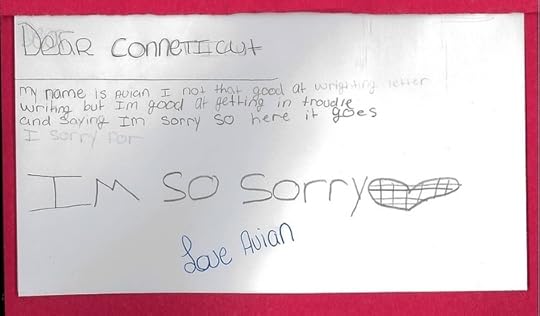 Dear Connetticut
my name is Avian I not that good at wrighting letter
writing but Im good at getting in troudle
and saying Im sorry so here it goes
I sorry for
Im so sorry
Love Avian